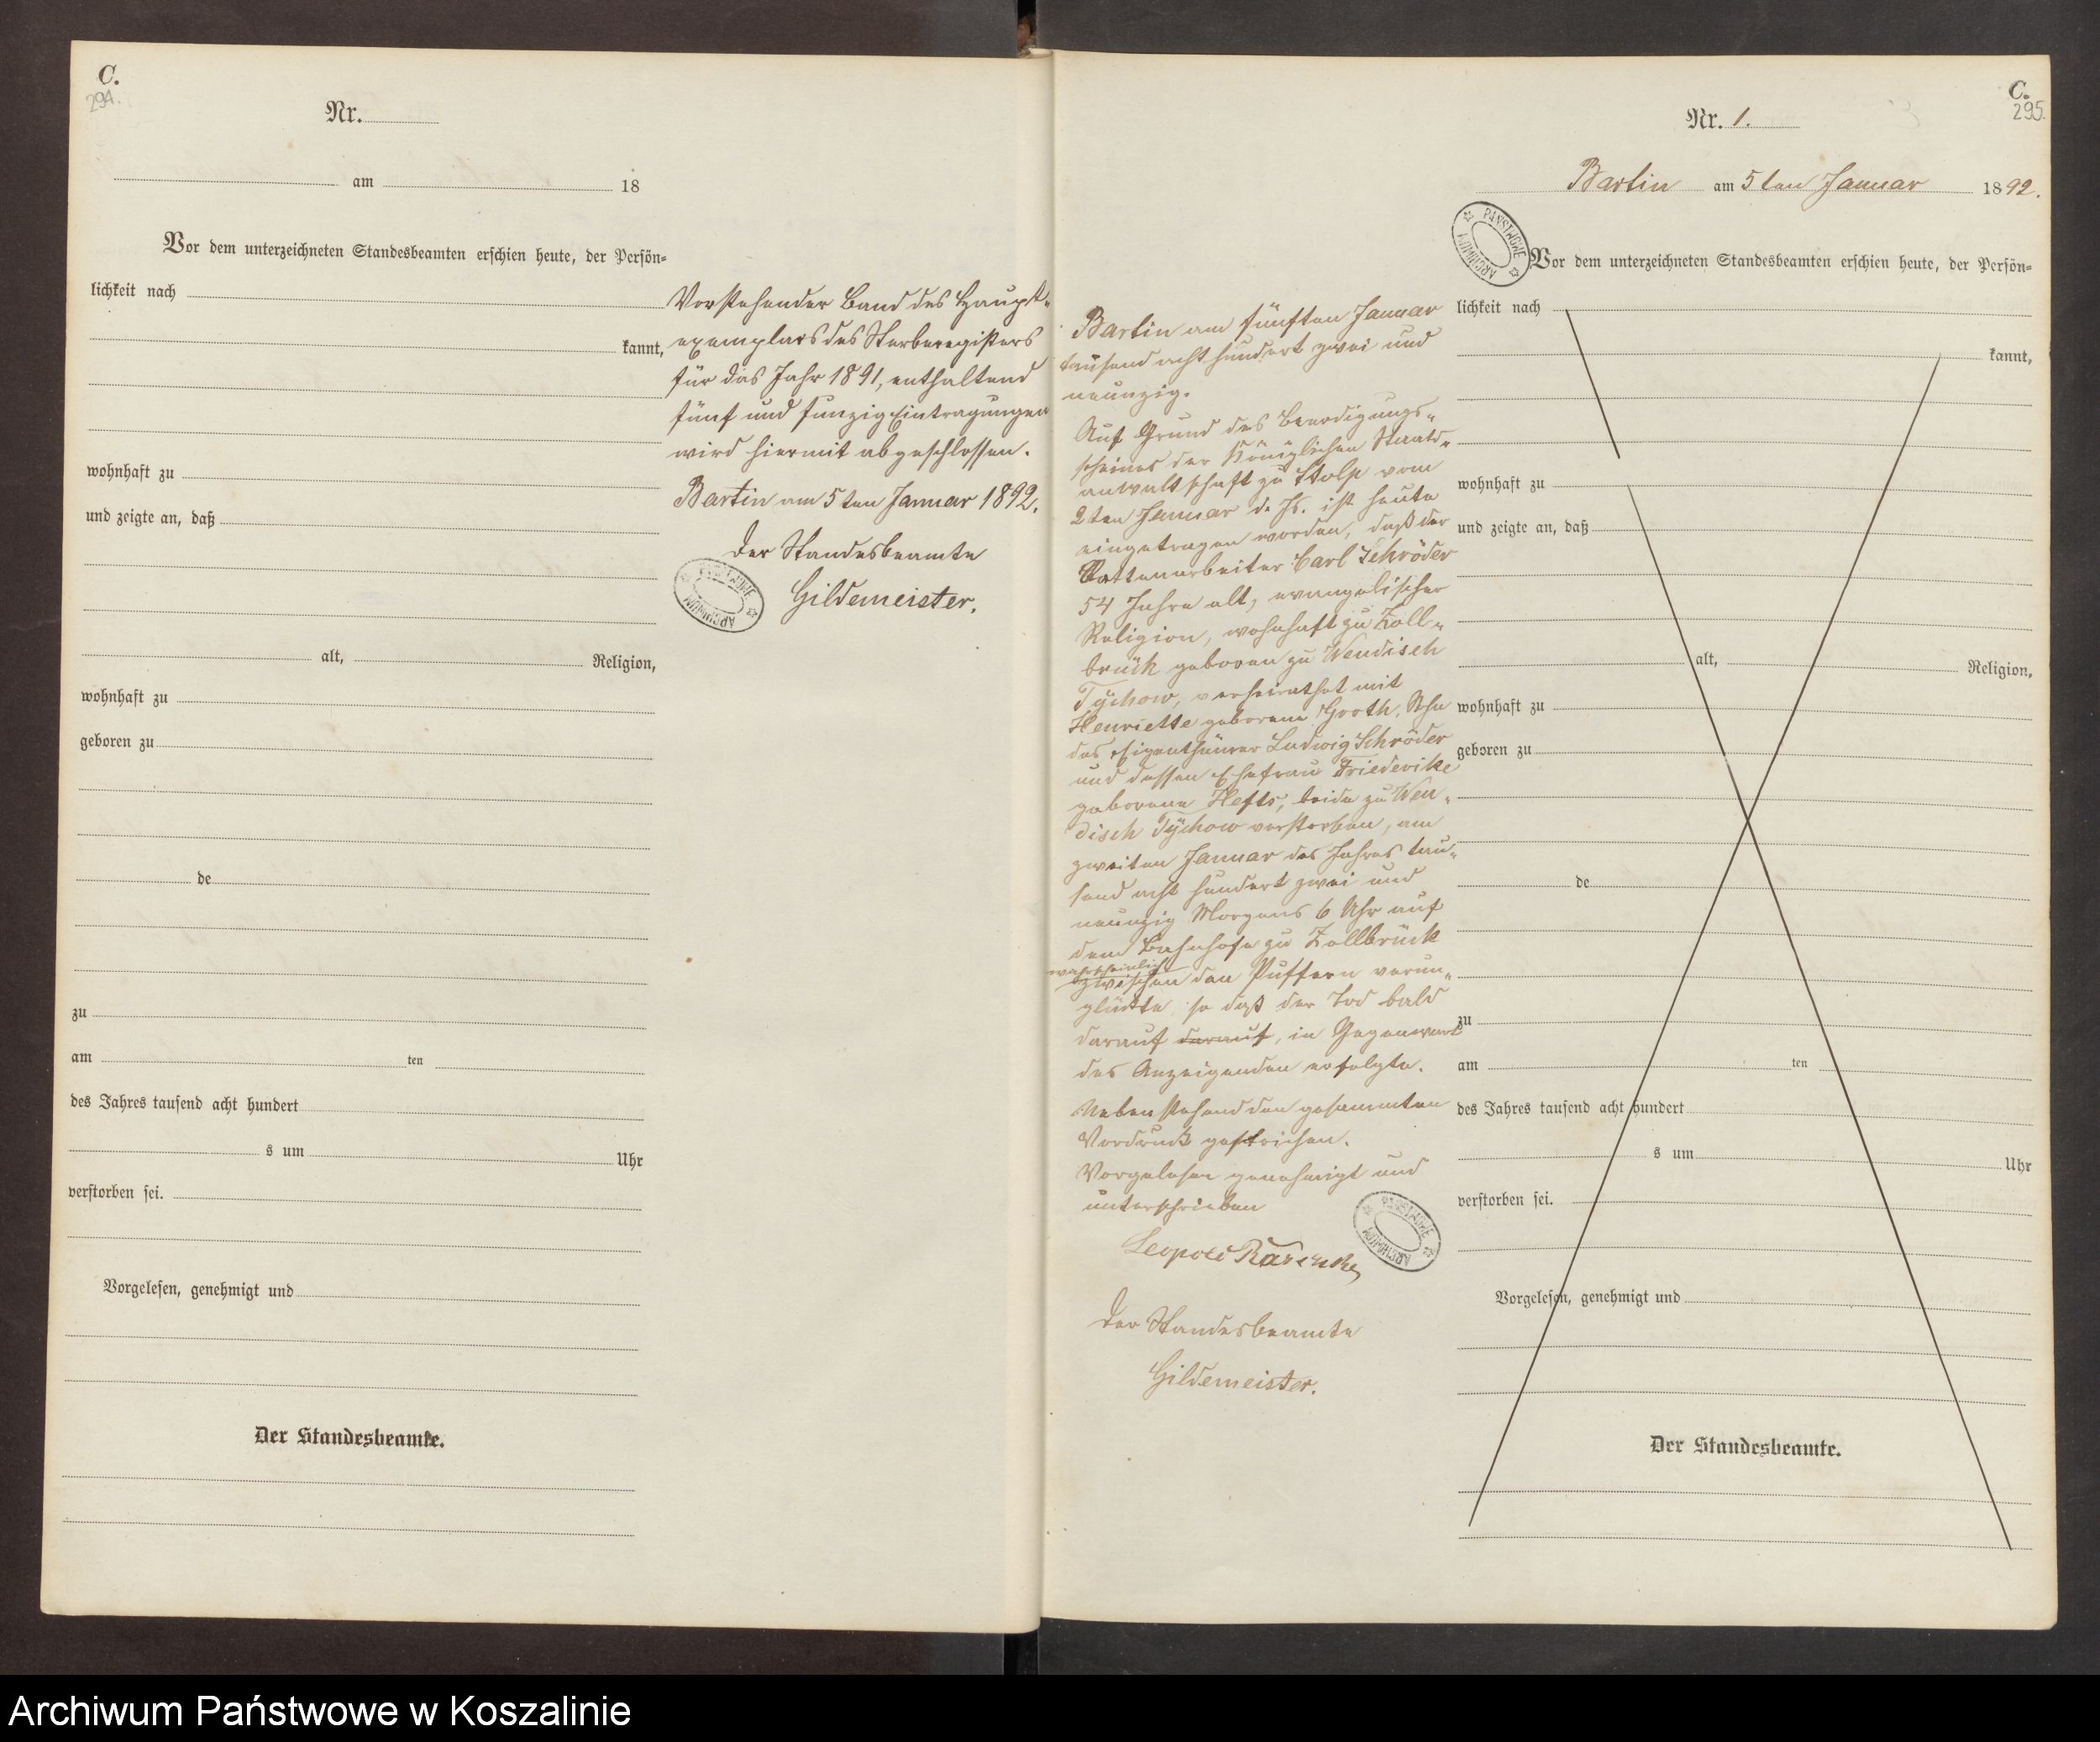 C.
294.
Nr.
am 18
Vor dem unterzeichneten Standesbeamten erschien heute, der Persön-
lichkeit nach
kannt,
wohnhaft zu
und zeigte an, daß
alt, Religion,
wohnhaft zu
geboren zu
de
zu
am ten
des Jahres tausend acht hundert
s um Uhr
verstorben sei.
Vorgelesen, genehmigt und
Der Standesbeamte.
Vorstehender Band des Haupt-
exemplars des Sterberegisters
für das Jahr 1891, enthaltend
fünf und funzig Eintragungen
wird hiermit abgeschlossen.
Bartin am 5ten Januar 1892.
Der Standesbeamte
Gildemeister.
PAŃSTWOWE ARCHIWUM
C.
295.
Nr. 1.
Bartin am 5ten Januar 1892.
PAŃSTWOWE ARCHIWUM
Bartin am fünften Januar
tausend acht hundert zwei und
neunzig.
Auf Grund des Beerdigungs-
scheines der Königlichen Staats-
anwaltschaft zu Stolp vom
2ten Januar d. Js. ist heute
eingetragen worden, daß der
Carl Schröder
54 Jahre alt, evangelischer
Religion, wohnhaft zu Zoll-
brück geboren zu Wendisch
Tÿchow, verheirathet mit
Henriette geborene Groth, Sohn
des Eigenthümer Ludwig Schröder
und dessen Ehefrau Friederike
geborene Hefts, beide zu Wen-
disch Tÿchow verstorben, am
zweiten Januar des Jahres tau-
send acht hundert zwei und
neunzig Morgens 6 Uhr auf
dem Bahnhofe zu Zollbrück
wahrscheinlich
zwischen den Puffern verun-
glückte, so daß der Tod bald
darauf darauf, in Gegenwart
des Anzeigenden erfolgte.
Nebenstehend den gesammten
Vordruck gestrichen.
Vorgelesen genehmigt und
unterschrieben
Leopold
PAŃSTWOWE ARCHIWUM
Der Standesbeamte
Gildemeister.
Vor dem unterzeichneten Standesbeamten erschien heute, der Persön-
lichkeit nach
kannt,
wohnhaft zu
und zeigte an, daß
alt, Religion,
wohnhaft zu
geboren zu
de
zu
am ten
des Jahres tausend acht hundert
s um Uhr
verstorben sei.
Vorgelesen, genehmigt und
Der Standesbeamte.
Archiwum Państwowe w Koszalinie